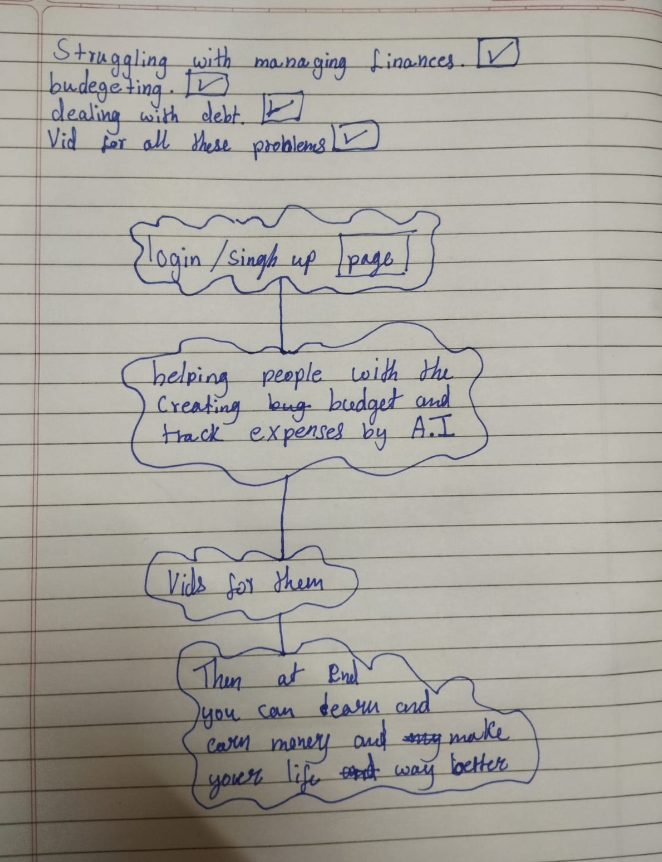 Struggling with managing finances.
budegeting.
dealing with debt.
Vid for all these problems
login / singh up page
helping people with the
Creating bug budget and
track expenses by A.I
Vids for them
Then at End
you can learn and
earn money and make
your life and way better